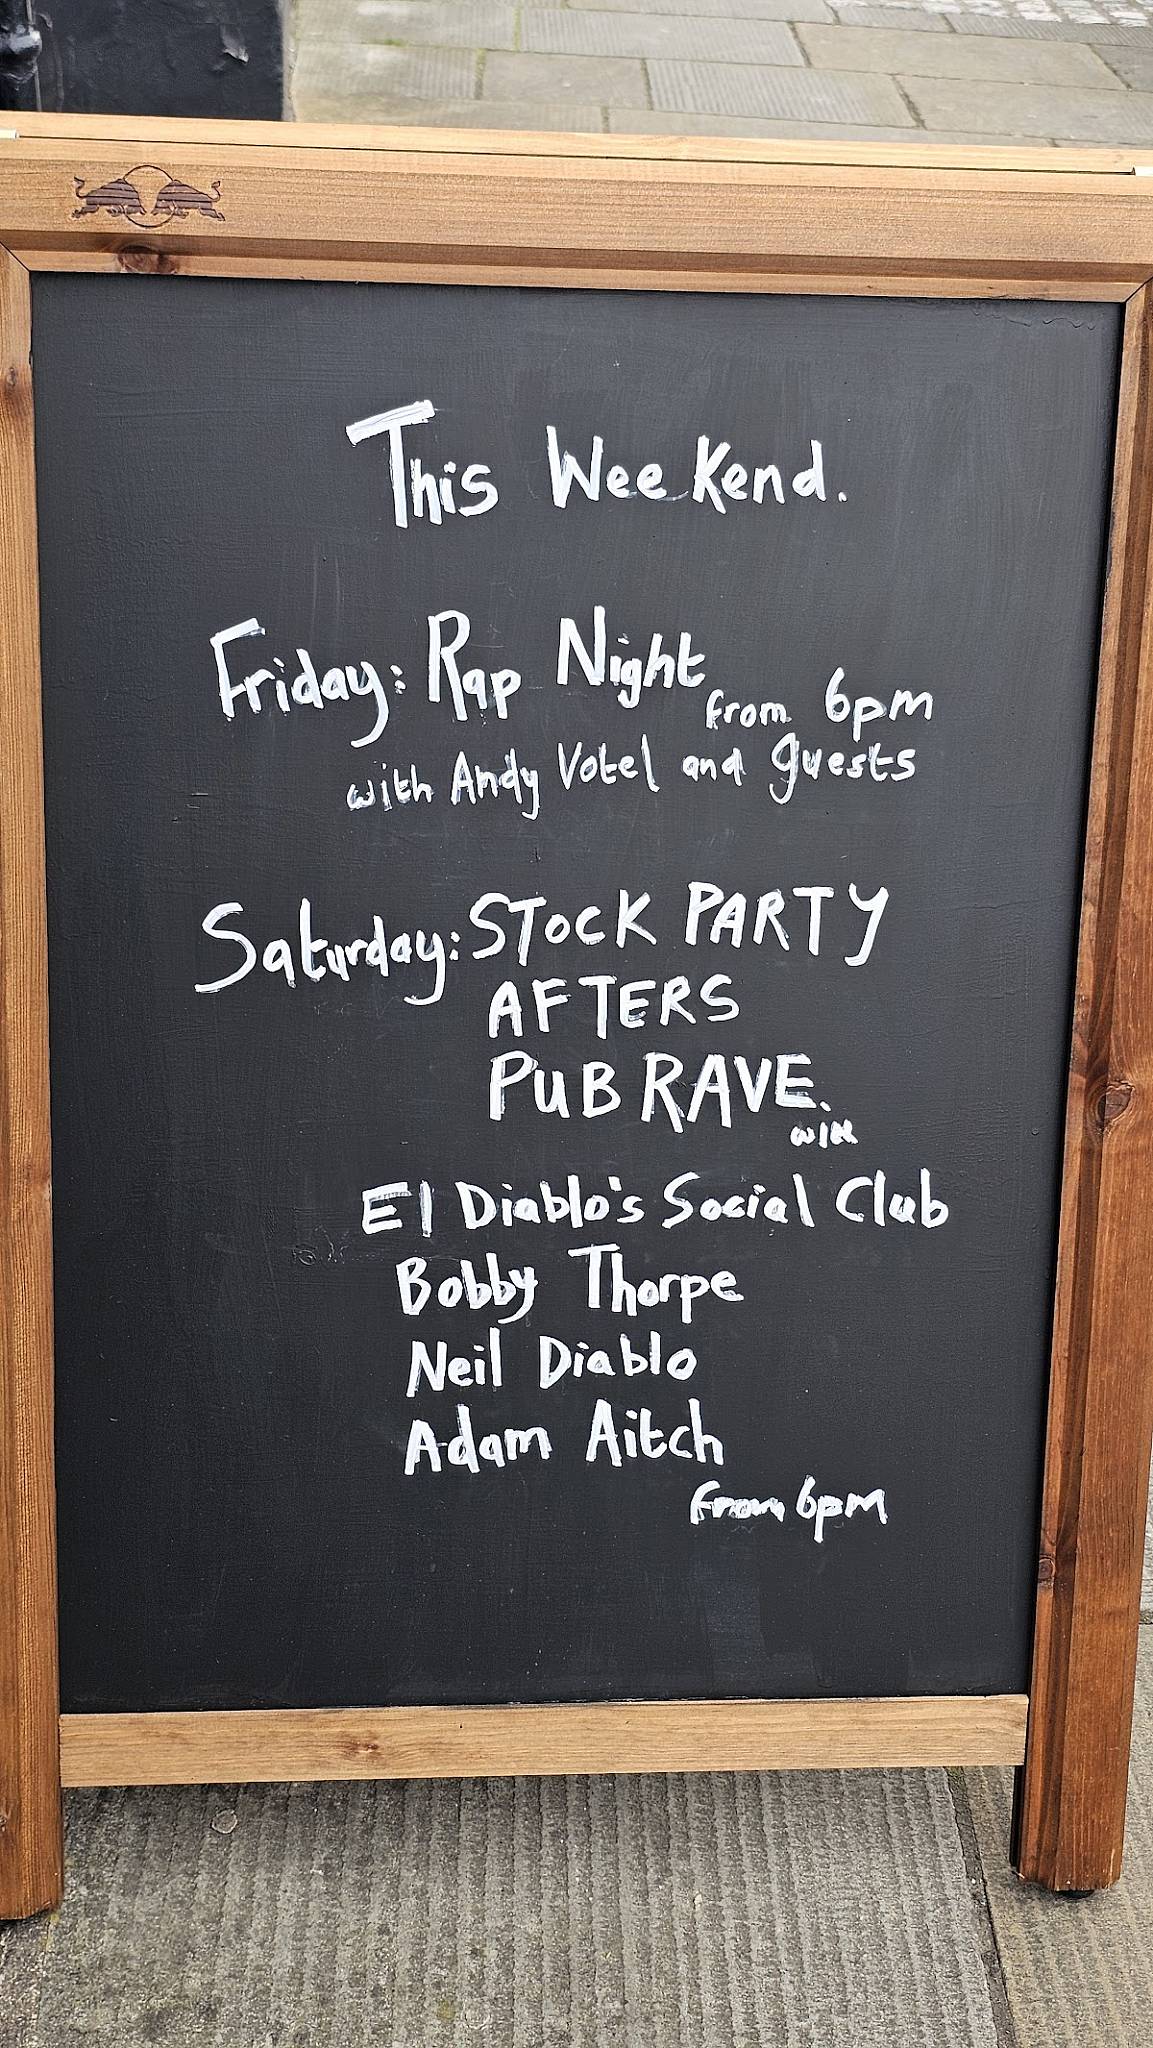 This Weekend.
Friday: Rap Night
from 6pm
with Andy Votel and guests
Saturday: STOCK PARTY
AFTERS
PUB RAVE.
with
El Diablo's Social Club
Bobby Thorpe
Neil Diablo
Adam Aitch
from 6pm